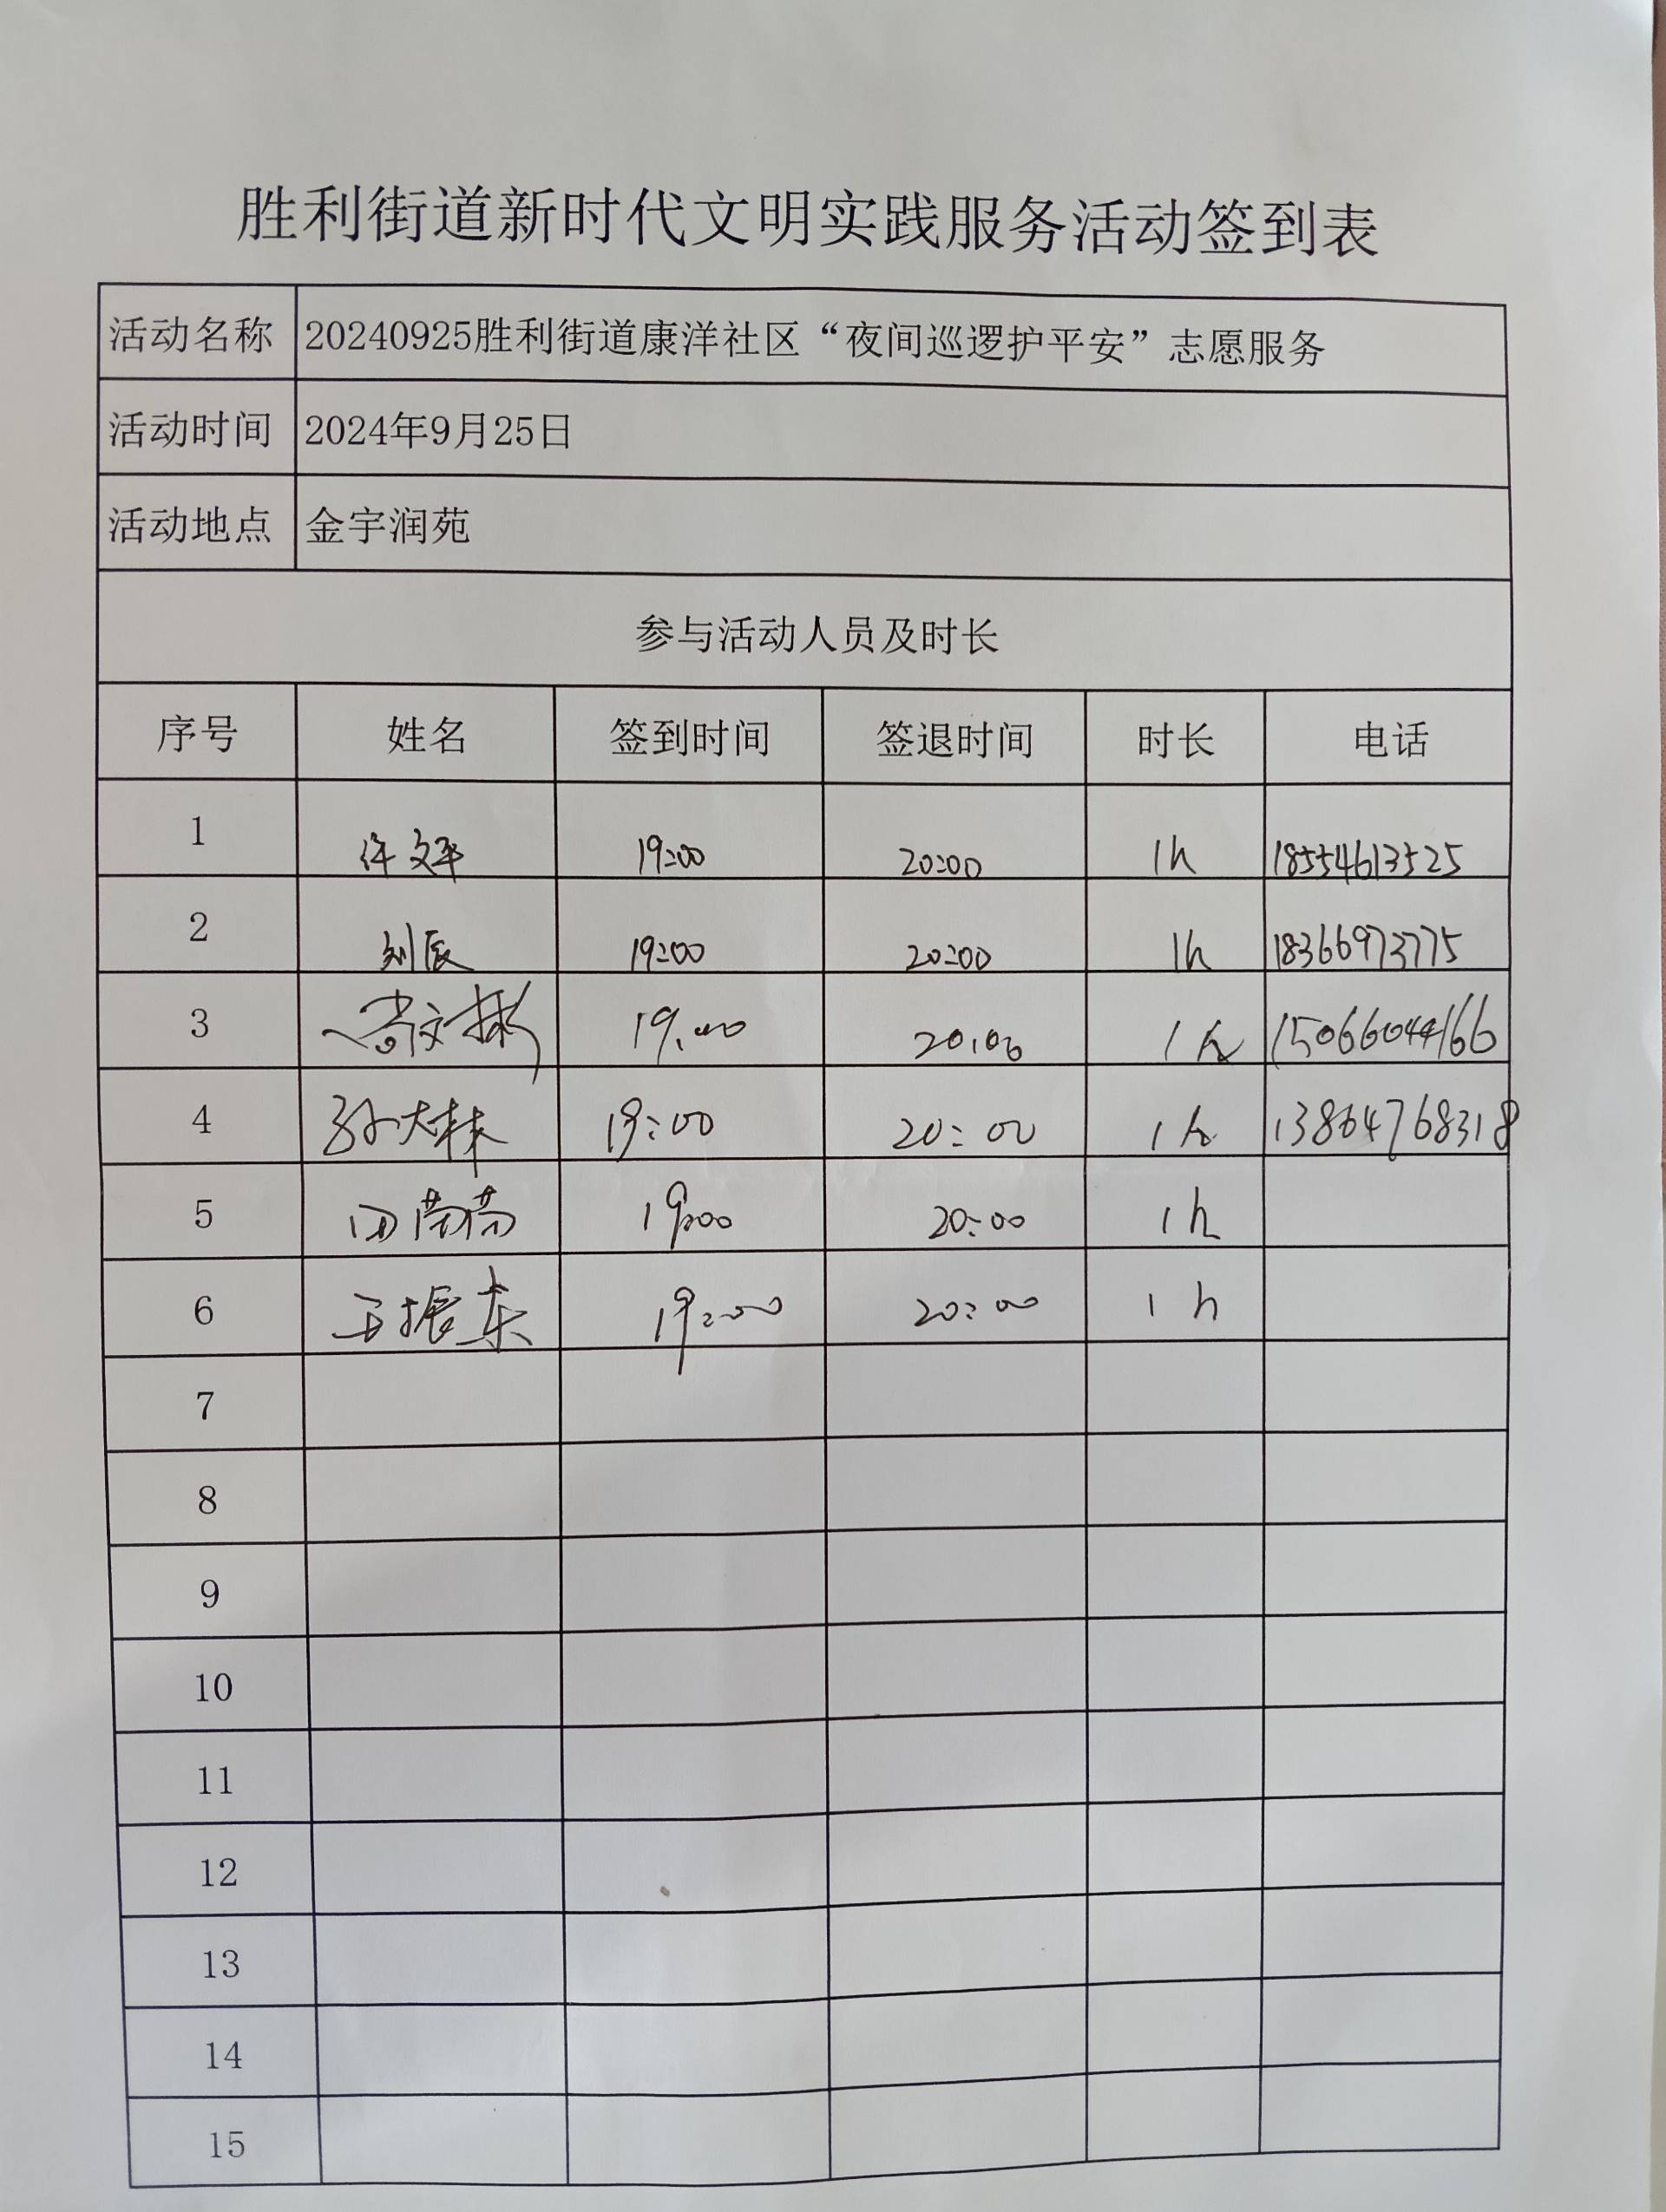 胜利街道新时代文明实践服务活动签到表
活动名称 20240925胜利街道康洋社区“夜间巡逻护平安”志愿服务
活动时间 2024年9月25日
活动地点 金宇润苑
参与活动人员及时长
序号 姓名 签到时间 签退时间 时长 电话
1 许文平 19:00 20:00 1h 18554613525
2 刘辰 19:00 20:00 1h 18366973775
3 文彬 19:00 20:00 1h 15066044166
4 孙大林 19:00 20:00 1h 13864768318
5 田 19:00 20:00 1h
6 王振东 19:00 20:00 1h
7
8
9
10
11
12
13
14
15